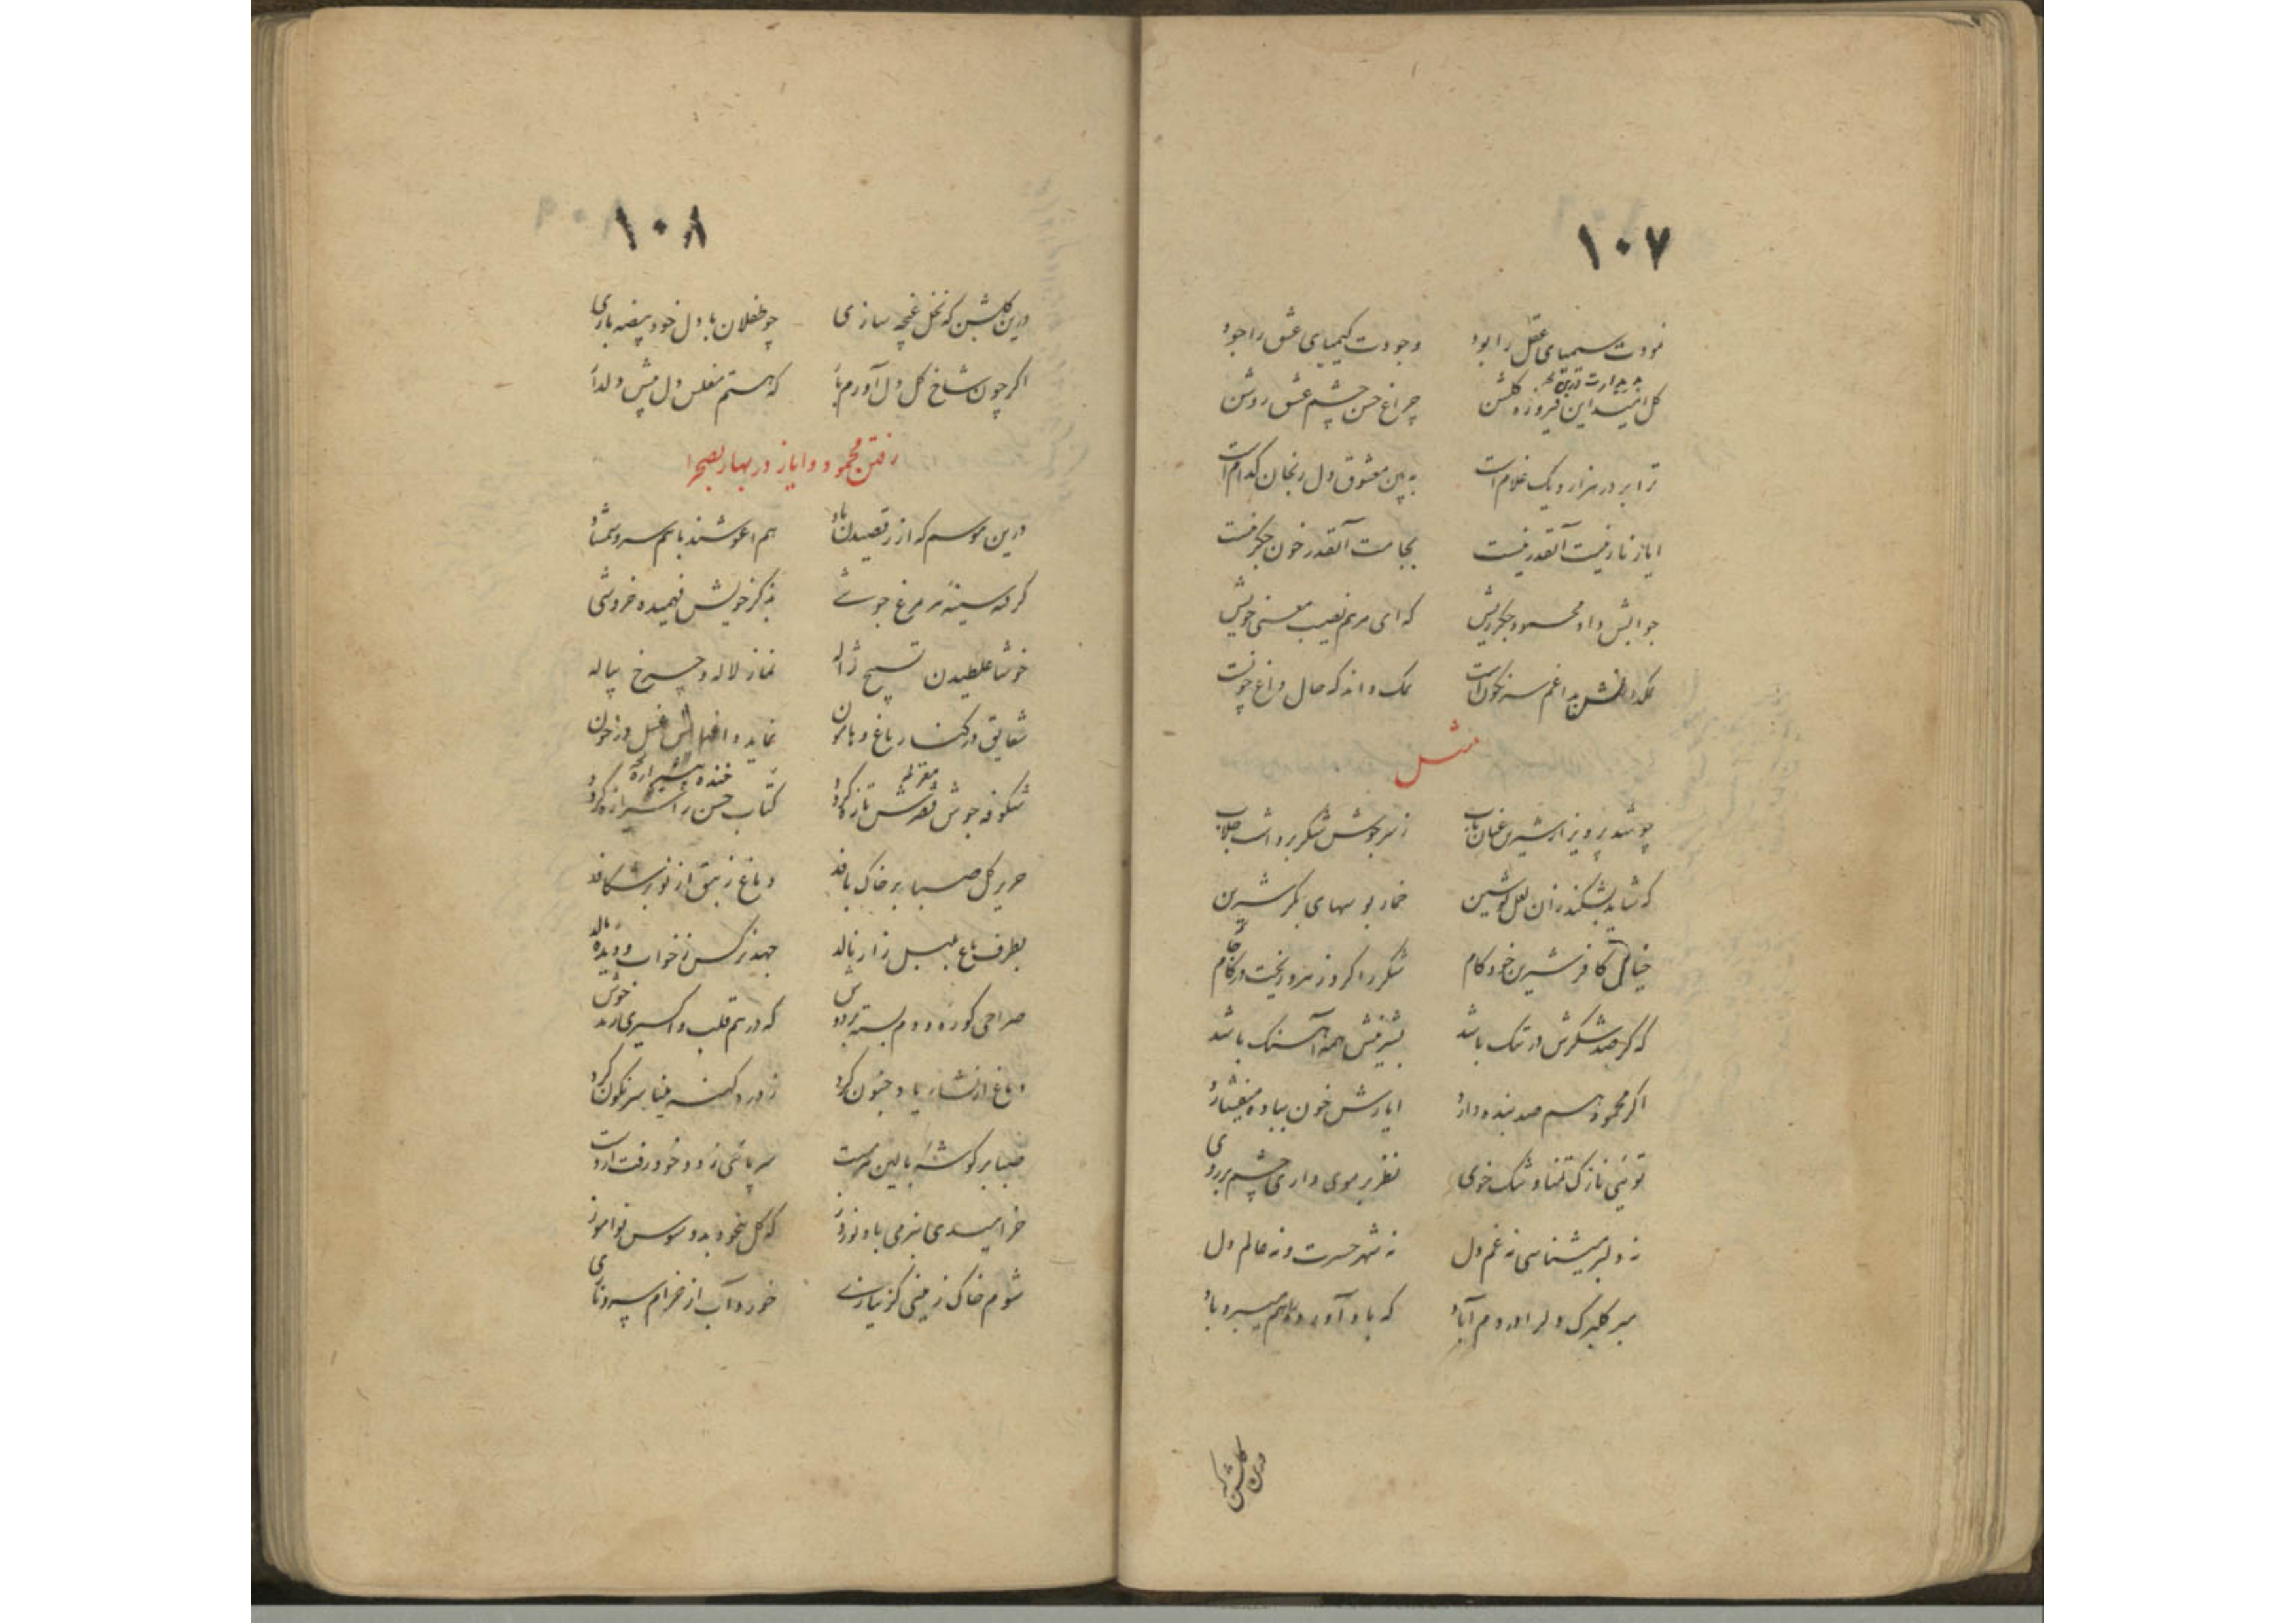 ۱۰۷
نمودت سیمیای عقل را بود وجودت کیمیای عشق را جود
گل امید این فیروزه گلشن چراغ حسن چشم عشق روشن
ترا بر در هزار و یک غلام است به بین معشوق دل رنجان کدام است
ایاز نازنینت آنقدر نیست بجامت آنقدر خون جگر نیست
جوابش داد محمود جگر ریش که ای مرهم نصیب معنی خویش
داغم سرنگون است نمک داند که حال داغ چونست
مثل
چو شد پرویز از شیرین عنان تاب ز سر جوش شکر برداشت جلاب
که شاید بشکند زان لعل نوشین خمار بوسهای بکر شیرین
خیال کافر شیرین خود کام شکر را کرد زهر و ریخت در کام
که گر صد شکرش در تنگ باشد بشیرینش همه آهنگ باشد
اگر محمود هم صد بنده دارد ایازش خون بباده میفشارد
توئی نازک تمنا و تنک خوی نظر بر موی داری چشم بر روی
نه دلبر میشناسی نه غم دل نه شهر حسرت و نه عالم دل
مبر گلبرگ دل را در دم آباد که باد آورده را هم میبرد باد
درین گلشن که
۱۰۸
درین گلشن که نخل غنچه سازی چو طفلان با دل خود بیضه بازی
اگر چون شاخ گل دل آورم بار که هستم مفلس دل پیش دلدار
رفتن محمود و ایاز در بهار بصحرا
درین موسم که از رقصیدن باد هم اغوشند باهم سرو و شمشاد
گرفته سینهٔ هر مرغ جوشی بذکر خویش فهمیده خروشی
خوشا غلطیدن تسبیح ژاله نماز لاله و چرخ پیاله
شقایق در کنار باغ و هامون نماید داغهایش غسل در خون
شکوفه جوش تازه کرد کتاب حسن را شیرازه کرد
حریر گل صبا بر خاک بافد دماغ زنبق از نو بر شکافد
بطرف باغ بلبل زار نالد جهد نرگس ز خواب و دیده مالد
صراحی کوزه و دم بسته بر دوش که درهم قلب و اکسیری زند خوش
دماغ از نشاء یاد جنون کرد ز درد کهنه مینا سرنگون کرد
صبا بر گوشهٔ بالین سرمست سر پائی زد و خود رفت از دست
خرامیدی بنرمی باد نوروز که گل بیخود بد و سوسن نواموز
شوم خاک زمینی کز نیازی خورد آب از خرام سرو نازی